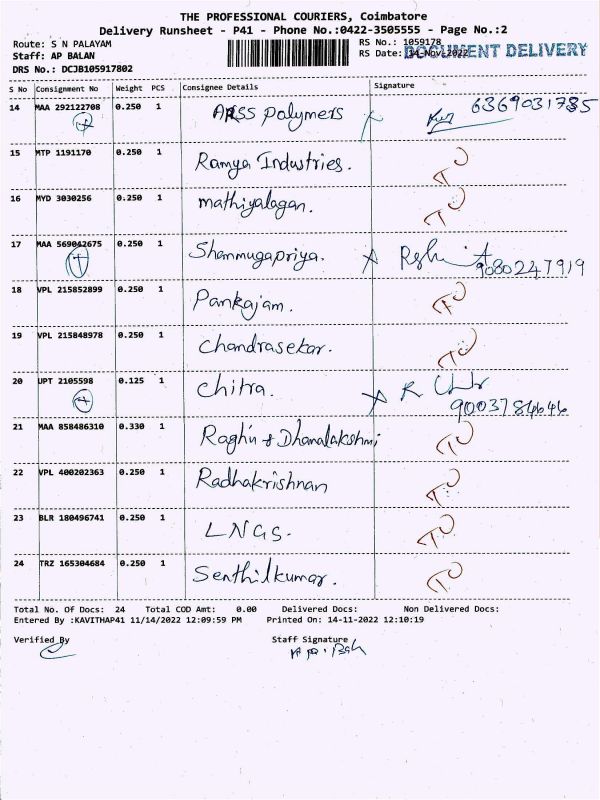 THE PROFESSIONAL COURIERS, Coimbatore
Delivery Runsheet - P41 - Phone No.:0422-3505555 - Page No.:2
Route: S N PALAYAM
RS No.: 1059178
Staff: AP BALAN
RS Date: 14-Nov-2022
DOCUMENT DELIVERY
DRS No.: DCJB105917802
S No Consignment No Weight PCS Consignee Details Signature
14 MAA 292122708 0.250 1 ARSS Polymers 6369031785
15 MTP 1191170 0.250 1 Ramya Industries.
16 MYD 3030256 0.250 1 mathiyalagan.
17 MAA 569042675 0.250 1 Shanmugapriya. 9080247919
18 VPL 215852899 0.250 1 Pankajam.
19 VPL 215848978 0.250 1 Chandrasekar.
20 UPT 2105598 0.125 1 Chitra. 9003784646
21 MAA 858486310 0.330 1 Raghu & Dhanalakshmi
22 VPL 400202363 0.250 1 Radhakrishnan
23 BLR 180496741 0.250 1 LNGS.
24 TRZ 165304684 0.250 1 Senthilkumar.
Total No. Of Docs: 24 Total COD Amt: 0.00 Delivered Docs: Non Delivered Docs:
Entered By :KAVITHAP41 11/14/2022 12:09:59 PM Printed On: 14-11-2022 12:10:19
Verified By Staff Signature